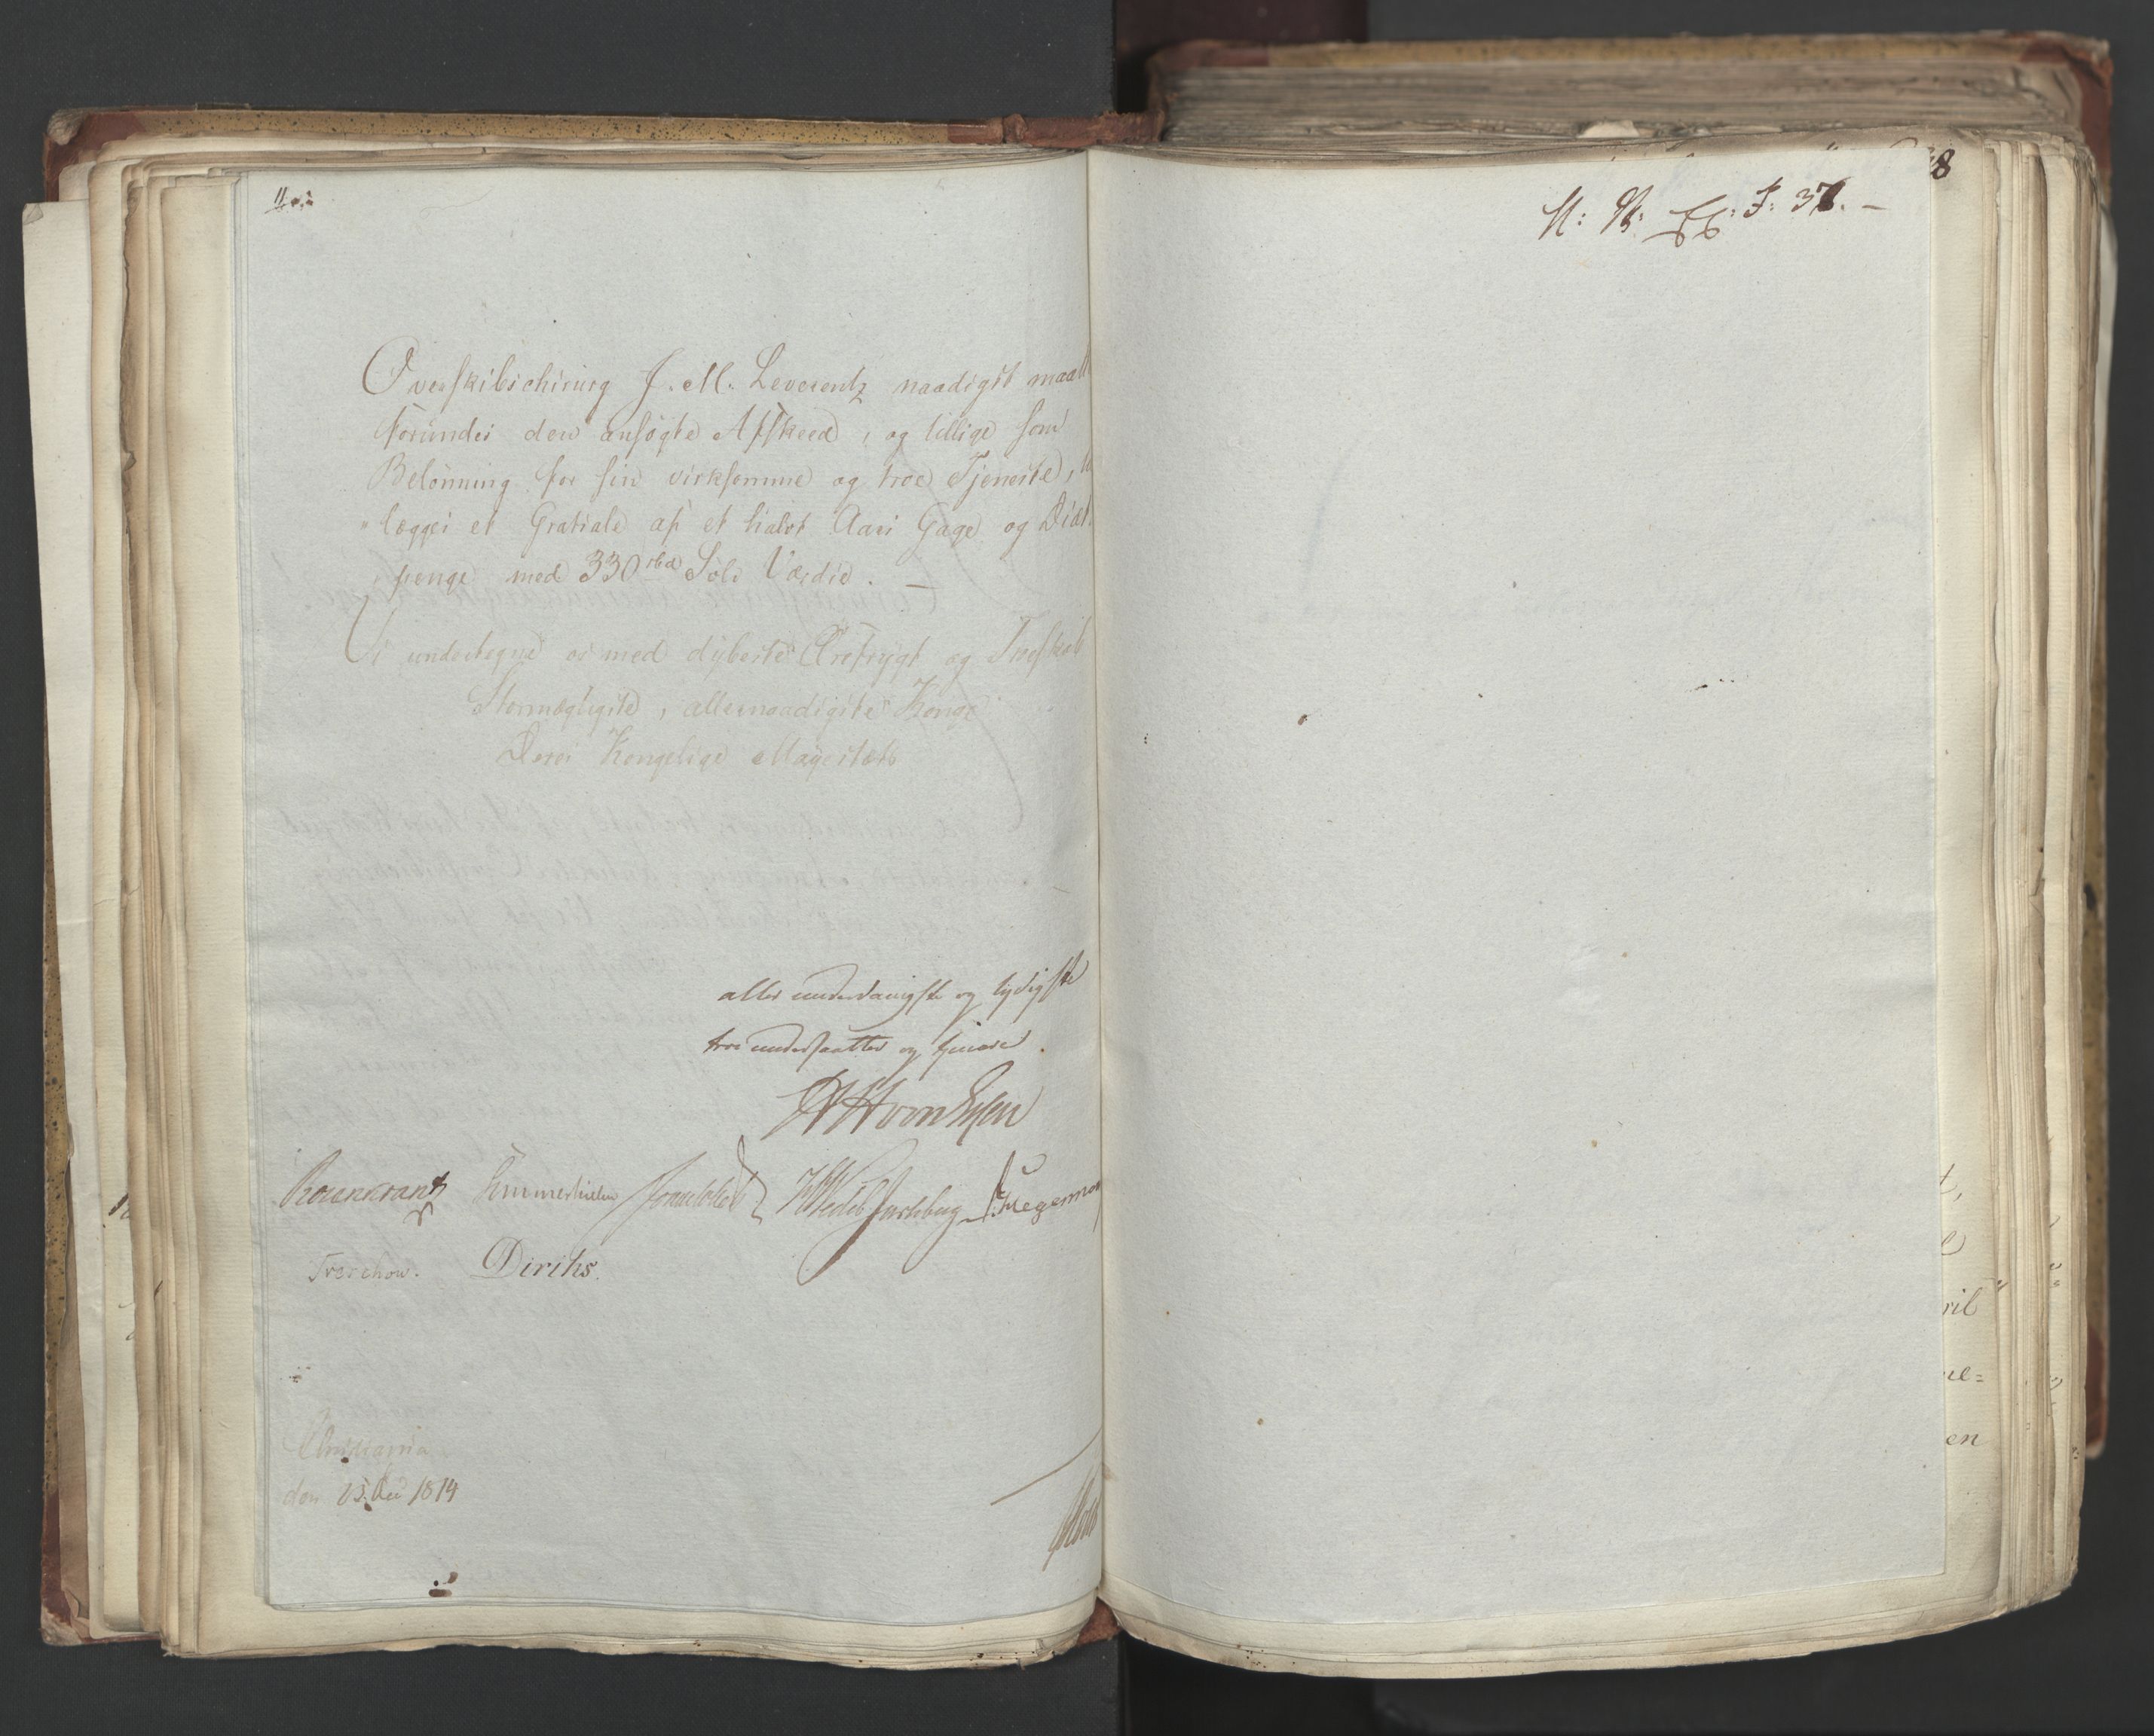 Overskibschirurg J. M. Leverentz naadigst maatte
forundes den ansøgte Afskeed, og tillige som
Belønning for sin virksomme og troe Tjeneste,
lægges et Gratiale af et halvt Aars Gage og Diæt
penge med 330 rbd Sølv Værdie. —
Vi undertegne os med dybeste Ærefrygt og Troeskab
Stormægtigste, allernaadigste Konge
Deres Kongelige Mayestæts
aller underdanigste og lydigste
troe undersaatter og tjenere
Rosenkrantz Sommerhielm HWedel Jarlsberg Hegermann
Treschow. Diriks.
Christiania
den 15. Dec 1814
8
N: R: Ex: J: 37. —
ril
ne=
en